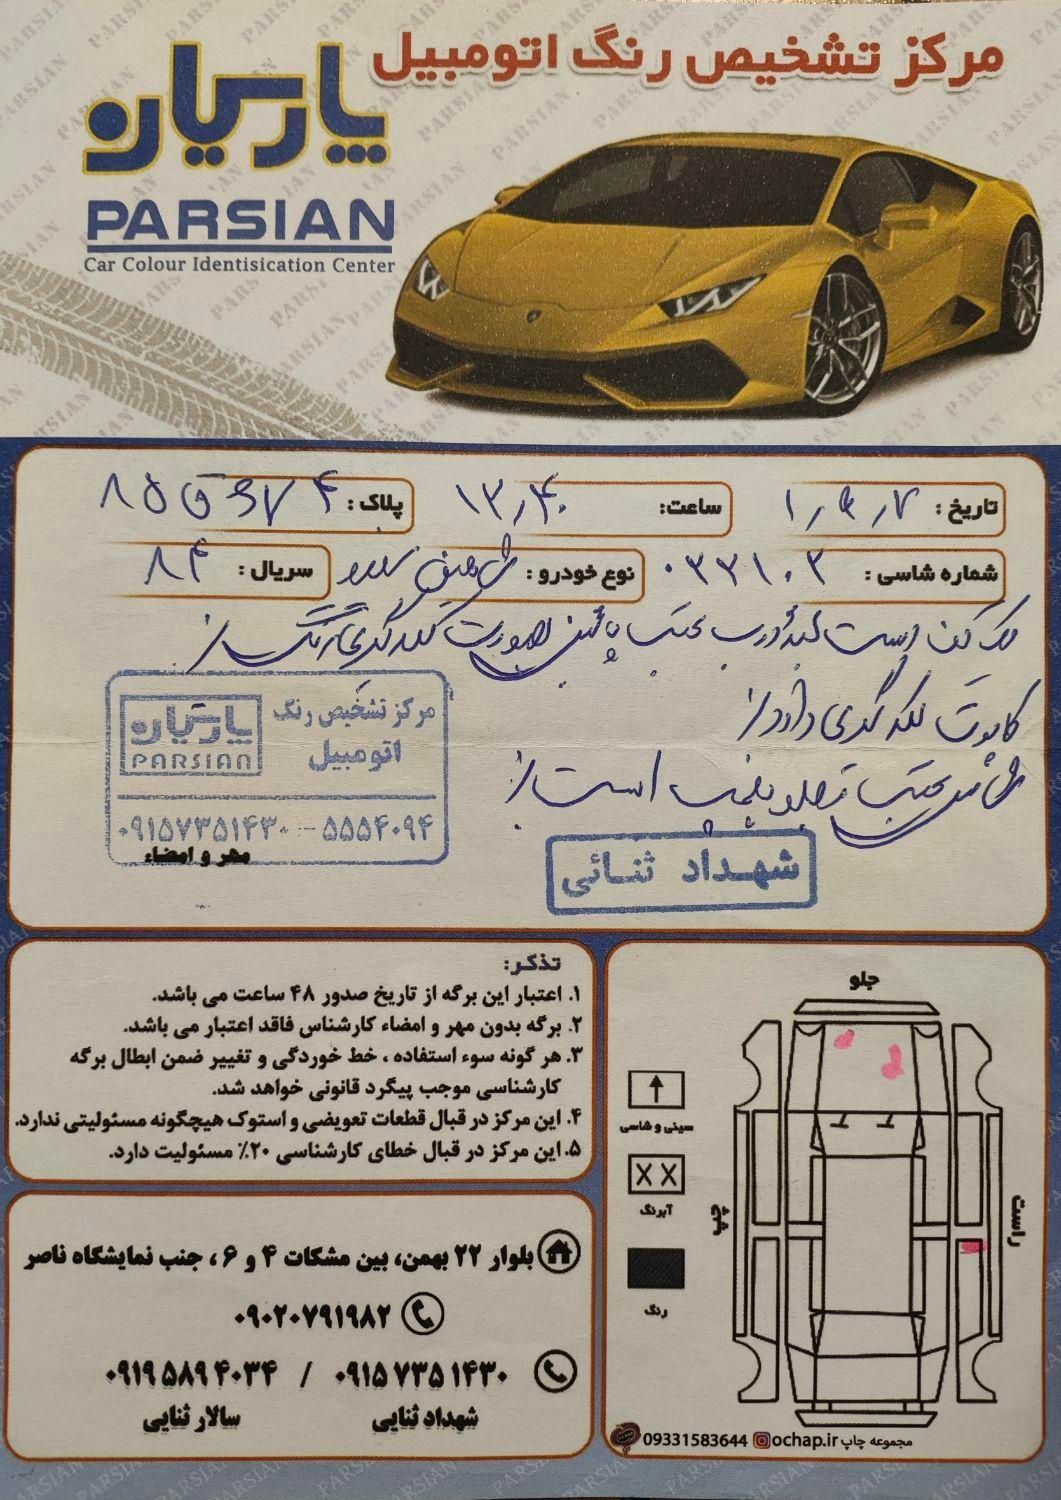 مرکز تشخیص رنگ اتومبیل
پارسیان
PARSIAN
Car Colour Identisication Center
تاریخ :
ساعت: ۱۳,۴۰
پلاک :
شماره شاسی : ۰۳۳۱۰۳
نوع خودرو :
سریال : ۸۴
است
کاپوت لکه گیری دارد
پلمپ است
مرکز تشخیص رنگ
اتومبیل
پارسیان
PARSIAN
۰۹۱۵۷۳۵۱۴۳۰ - ۵۵۵۴۰۹۴
مهر و امضاء
شهداد ثنائی
تذکر:
۱. اعتبار این برگه از تاریخ صدور ۴۸ ساعت می باشد.
۲. برگه بدون مهر و امضاء کارشناس فاقد اعتبار می باشد.
۳. هر گونه سوء استفاده ، خط خوردگی و تغییر ضمن ابطال برگه
کارشناسی موجب پیگرد قانونی خواهد شد.
۴. این مرکز در قبال قطعات تعویضی و استوک هیچگونه مسئولیتی ندارد.
۵. این مرکز در قبال خطای کارشناسی ۲۰٪ مسئولیت دارد.
جلو
سینی و شاسی
XX
آبرنگ
رنگ
چپ
راست
بلوار ۲۲ بهمن، بین مشکات ۴ و ۶ ، جنب نمایشگاه ناصر
۰۹۰۲۰۷۹۱۹۸۲
۰۹۱۵ ۷۳۵ ۱۴۳۰ / ۰۹۱۹ ۵۸۹ ۴۰۳۴
شهداد ثنایی
سالار ثنایی
مجموعه چاپ ochap.ir 09331583644